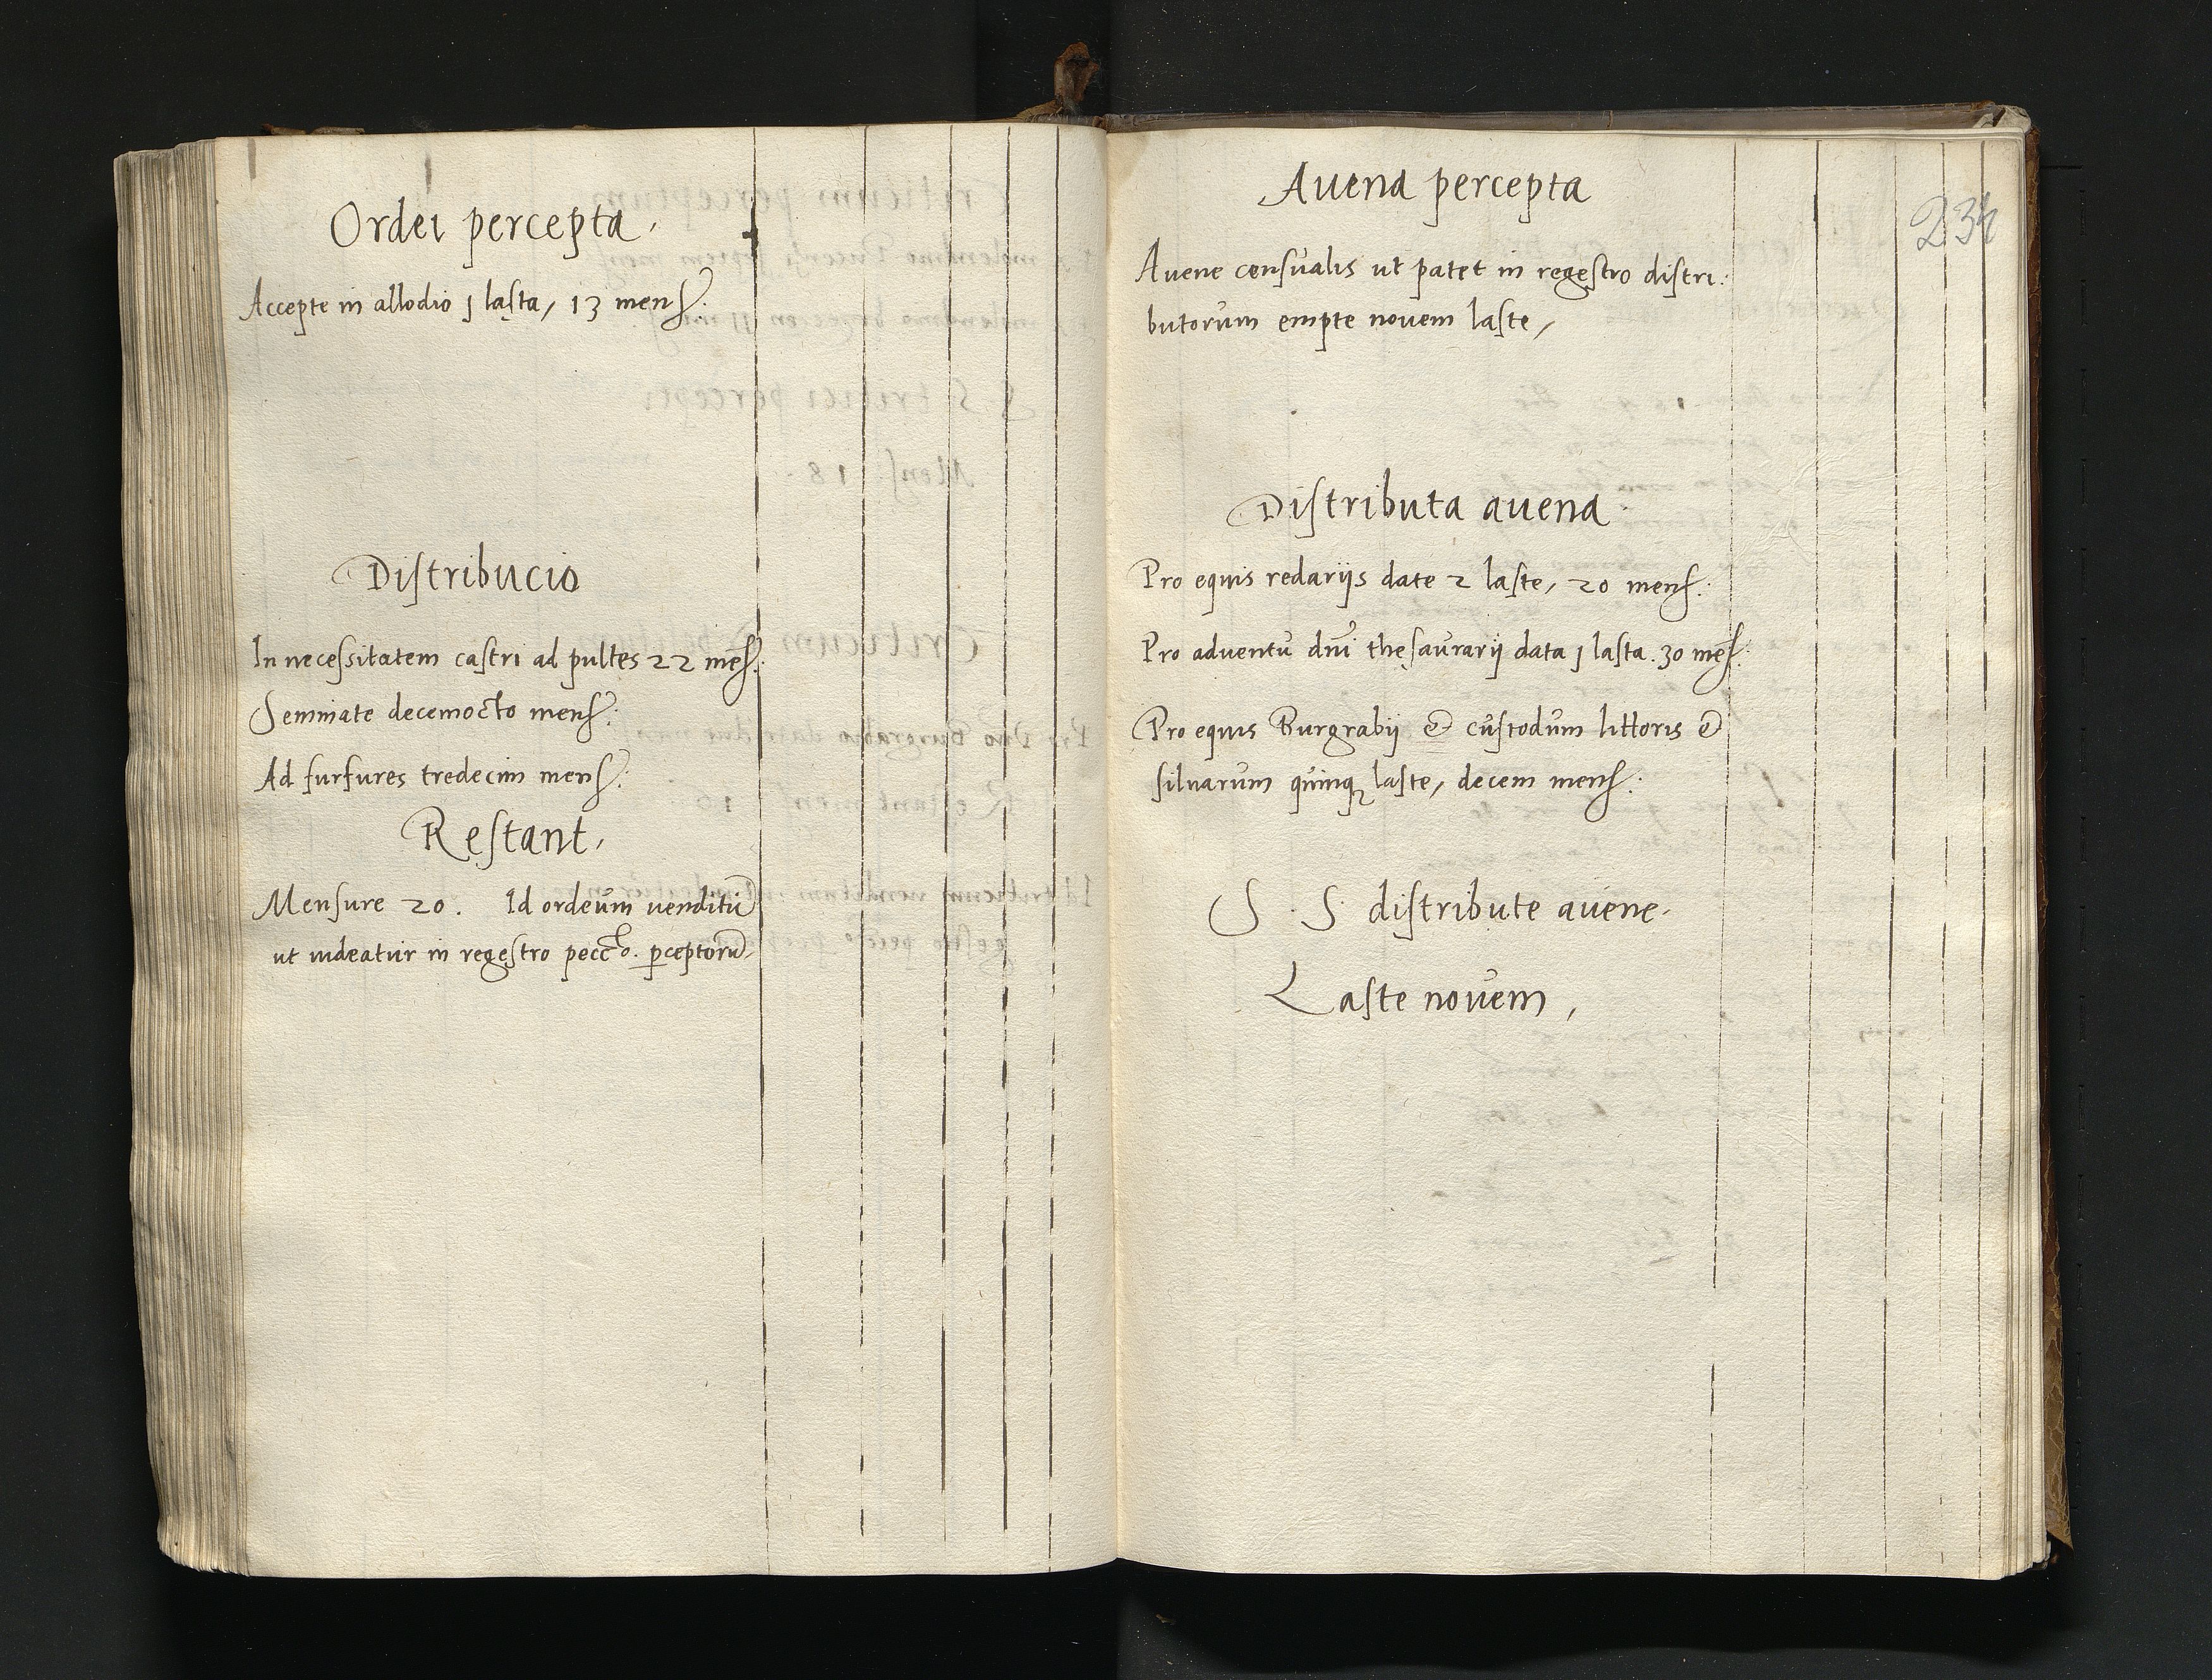 Ordei percepta.
Accepte in allodio j lasta, 13 mens:
Distribucio
In necessitatem castri ad pultes 22 mes:
Seminate decemocto mens:
Ad furfures tredecim mens:
Restant,
Mensure 20. Id ordeum venditū
ut videatur in regestro pecc̄o. pceptorū
234
Auena percepta
Auene censualis ut patet in regestro distri:
butorum empte nouem laste,
Distributa auena
Pro equis redariis date 2 laste, 20 mens:
Pro adventu dni thesaurarij data j lasta. 30 mes:
Pro equis Burgrabij & custodum littoris &
siluarum quinqꝫ laste, decem mens:
S. S. distribute auene.
Laste nouem,